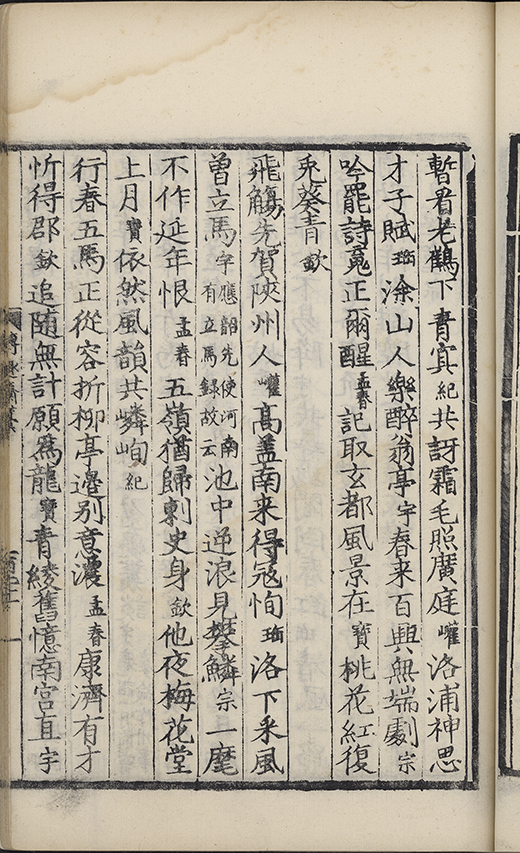 暫看老鶴下青㝠紀共訝霜毛照廣庭巏洛浦神思
才子賦珤滁山人樂醉翁亭宇春来百興無端劇宗
吟罷詩䰟正爾醒孟春記取玄都風景在寶桃花紅復
兎葵青欽
飛觴先賀陝州人巏髙盖南来得冦恂珤洛下采風
曽立馬宇應韶先使河南有立馬録故云池中逆浪見攀鱗宗一麾
不作延年恨孟春五嶺猶歸剌史身欽他夜梅花堂
上月寳依然風韻共嶙峋紀
行春五馬正從容折柳亭邉别意濃孟春康濟有才
忻得郡欽追随無計願為龍寶青綾舊憶南宫直宇